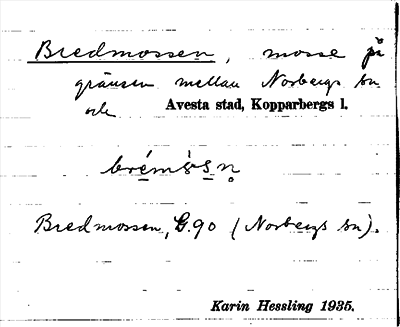 Bredmossen, mosse på
gränsen mellan Norbergs sn
och Avesta stad, Kopparbergs l.
brémòsn̥
Bredmossen, G.90 (Norbergs sn).
Karin Hessling 1935.